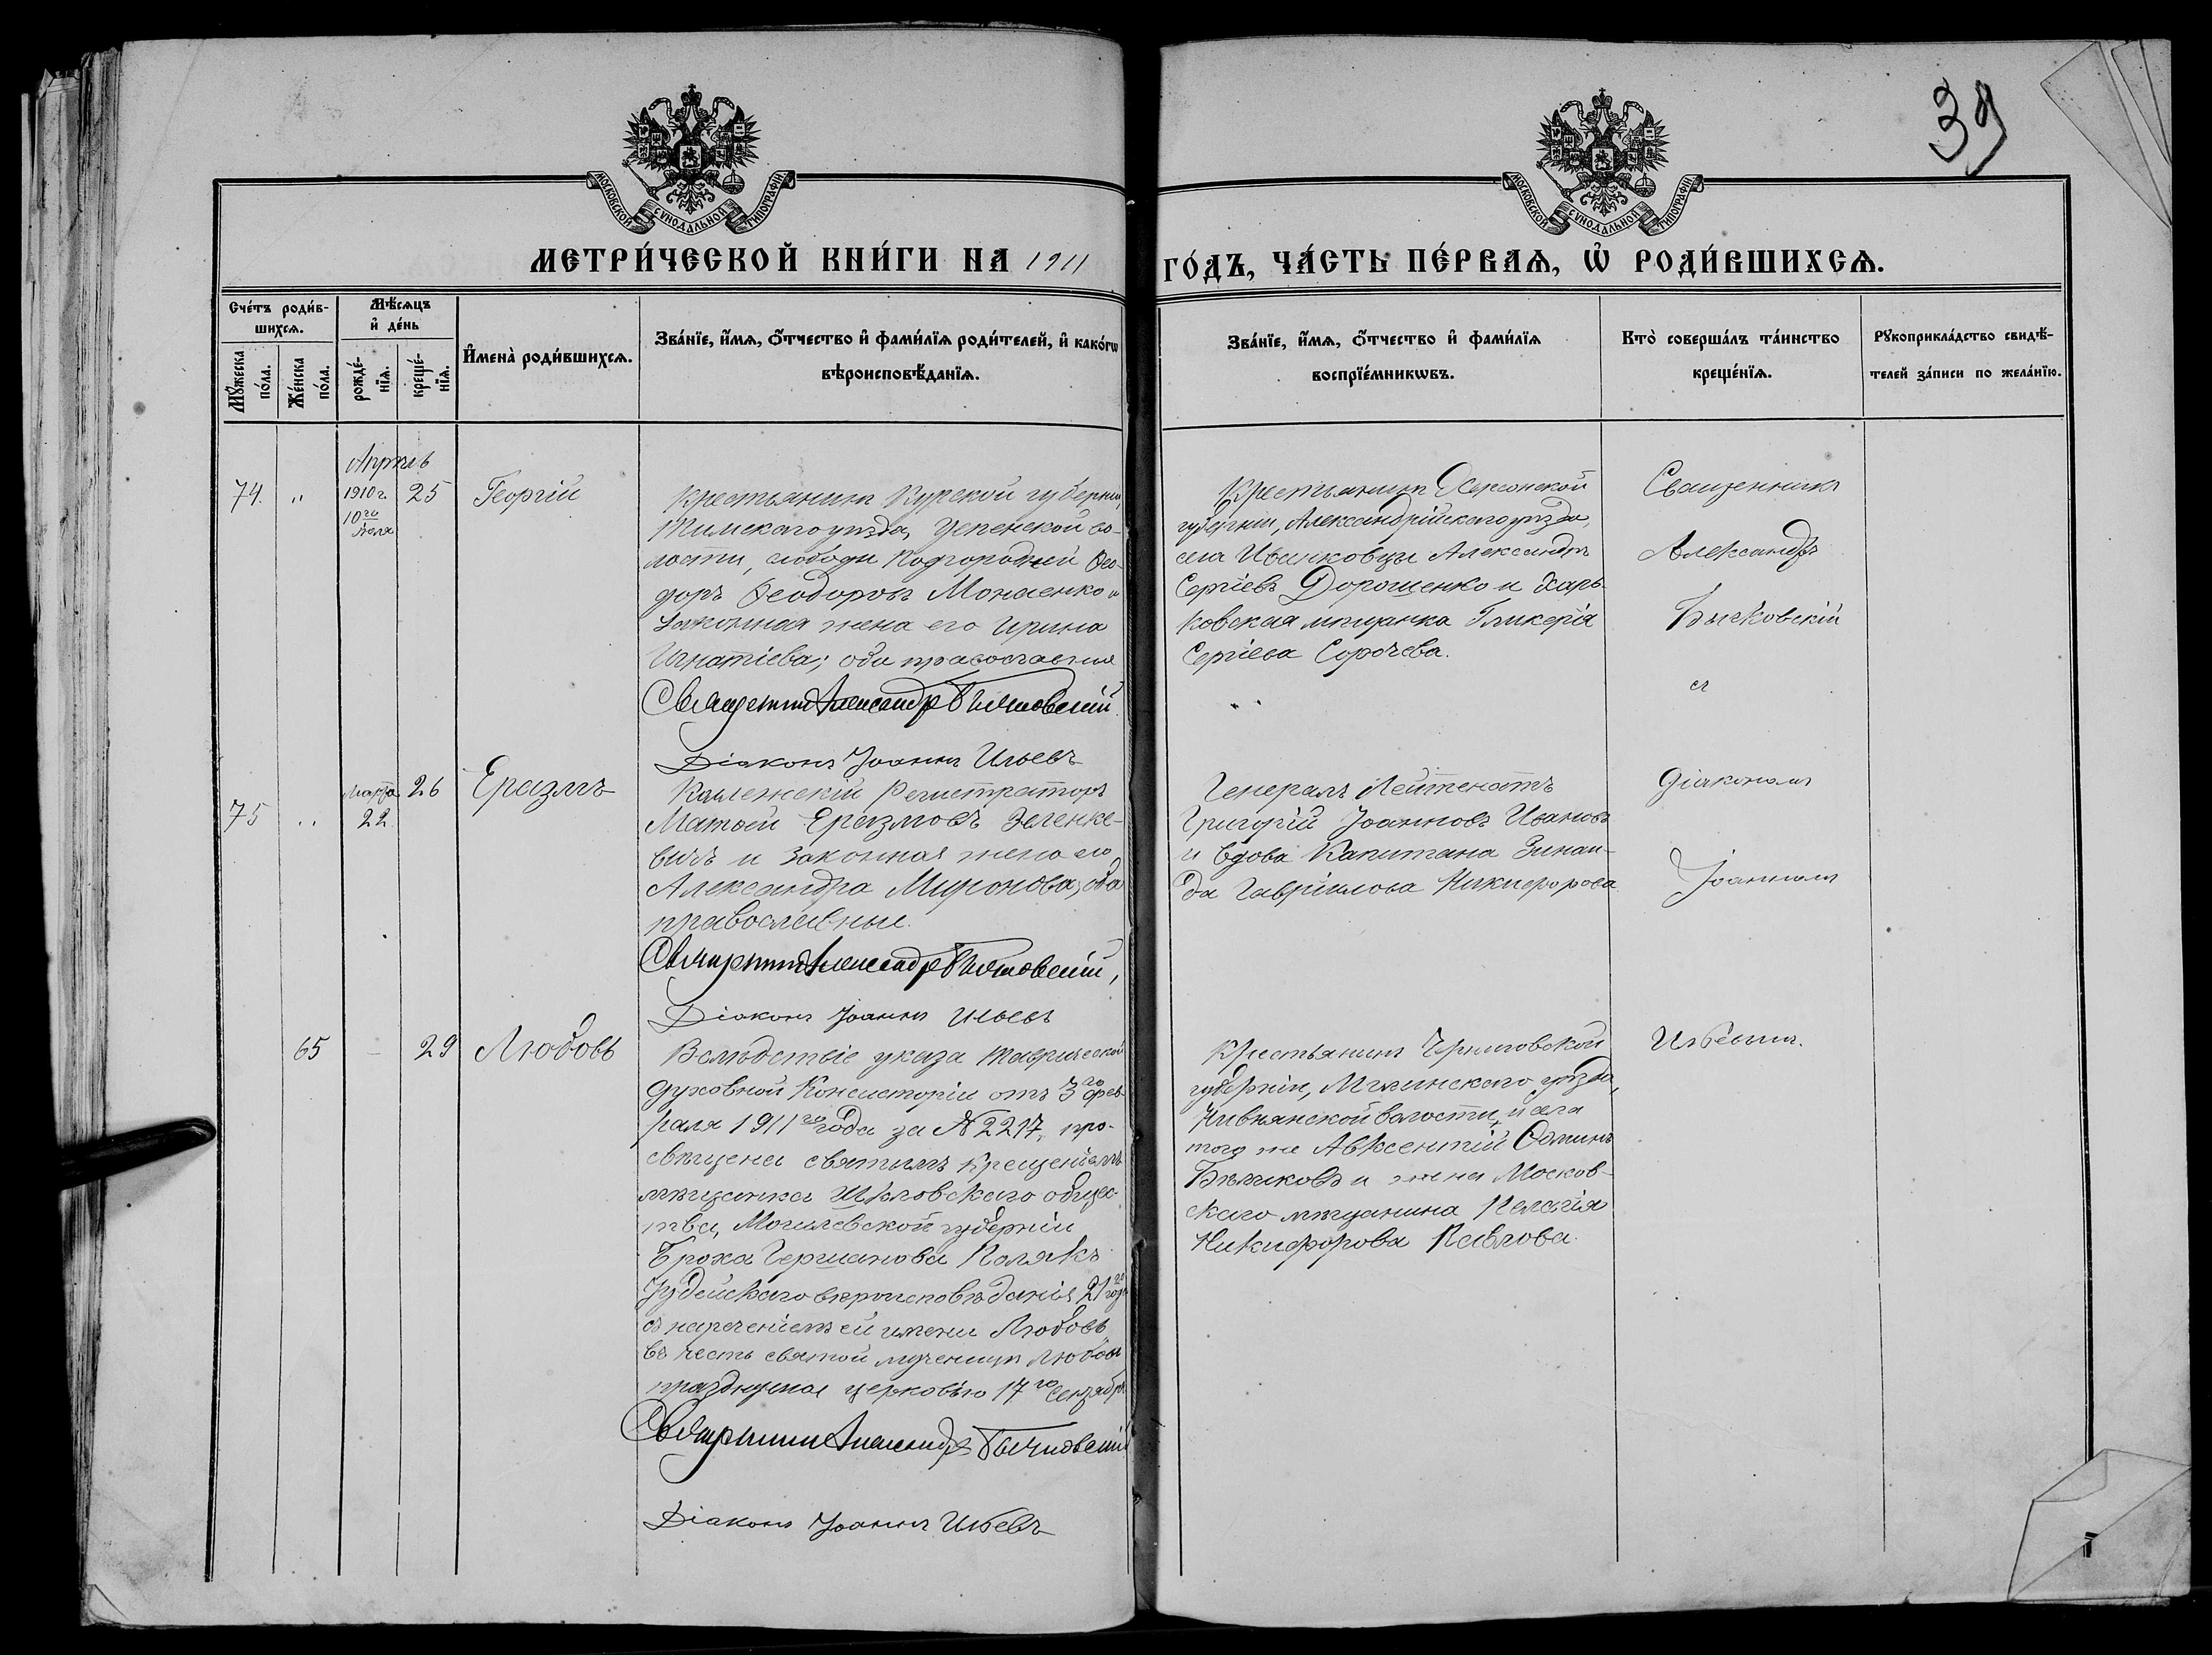 39
МОСКОВСКОЙ СѴНОДАЛЬНОЙ ТИПОГРАФІИ
МОСКОВСКОЙ СѴНОДАЛЬНОЙ ТИПОГРАФІИ
МЕТРИ́ЧЕСКОЙ КНИ́ГИ НА 1911
ГО́ДЪ, ЧА́СТЬ ПЕ́РВАѦ, Ѡ҆ РОДИ́ВШИХСѦ.
Сче́тъ роди́в-
шихсѧ.
Мꙋ́жеска по́ла.
Же́нска по́ла.
Мѣ́сѧцъ
и҆ де́нь
рожде́-нїѧ.
креще́-нїѧ.
И҆мена̀ роди́вшихсѧ.
Зва́нїе, и҆́мѧ, ѻ҆́тчество и҆ фами́лїѧ роди́телей, и҆ како́гѡ
вѣроисповѣ́данїѧ.
Зва́нїе, и҆́мѧ, ѻ҆́тчество и҆ фами́лїѧ
воспрїе́мникѡвъ.
Кто̀ соверша́лъ та́инство
креще́нїѧ.
Рꙋкоприкла́дство свидѣ́-
телей за́писи по жела́нїю.
Апрѣль
74. " 1910 г. 25 Георгій
10го
Крестьянинъ Курской губерніи,
Тимскаго уѣзда, Успенской во-
лости, слободы Подгородней Ѳео-
доръ Ѳеодоровъ Монаенко и
законная жена его Ирина
Игнатіева; оба православные
Священникъ Александръ Бычковскій
Діаконъ Іоаннъ Ильевъ
Крестьянинъ Херсонской
губерніи, Александрійскаго уѣзда,
села Иванковцы Александръ
Сергіевъ Дорошенко и Харь-
ковская мѣщанка Гликерія
Сергіева Сорочева.
Священникъ
Александръ
Бычковскій
съ
75 " Марта 26 Еразмъ
22
Коллежскій Регистраторъ
Матѳей Еразмовъ Зеленке-
вичъ и законная жена его
Александра Миронова, оба
православные.
Священникъ Александръ Бычковскій,
Діаконъ Іоаннъ Ильевъ
Генералъ Лейтенантъ
Григорій Іоанновъ Ивановъ
и вдова Капитана Зинаи-
да Гавріилова Никифорова
Діакономъ
Іоанномъ
65 – 29 Любовь
Вслѣдствіе указа Таврической
Духовной Консисторіи отъ 3го фев-
раля 1911го года за № 2217, про-
свѣщена святымъ Крещеніемъ
мѣщанка Шкловскаго общес-
тва, Могилевской губерніи
Броха Гершанова Полякъ
Іудейскаго вѣроисповѣданія 21го
съ нареченіемъ ей имени Любовь
въ честь святой мученицы Любви
празднуемой церковью 17го Сентября
Священникъ Александръ Бычковскій
Діаконъ Іоаннъ Ильевъ
Крестьянинъ Черниговской
губерніи, Мглинскаго уѣзда,
Нивнянской волости, и села
того же Авксентій
и жена Москов-
скаго мѣщанина Пелагія
Никифорова Павлова.
Ильевымъ.